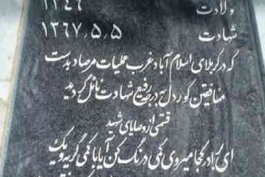 ولادت ۱۳۴۶
شهادت ۱۳۶۷.۵.۵
که در کربلای اسلام آباد غرب عملیات مرصاد بدست
منافقین کوردل به درجه رفیع شهادت نائل گردید
قسمتی از وصایای شهید
ای زاد کجا میروی کمی درنگ کن آیا با کمی گریه و یک